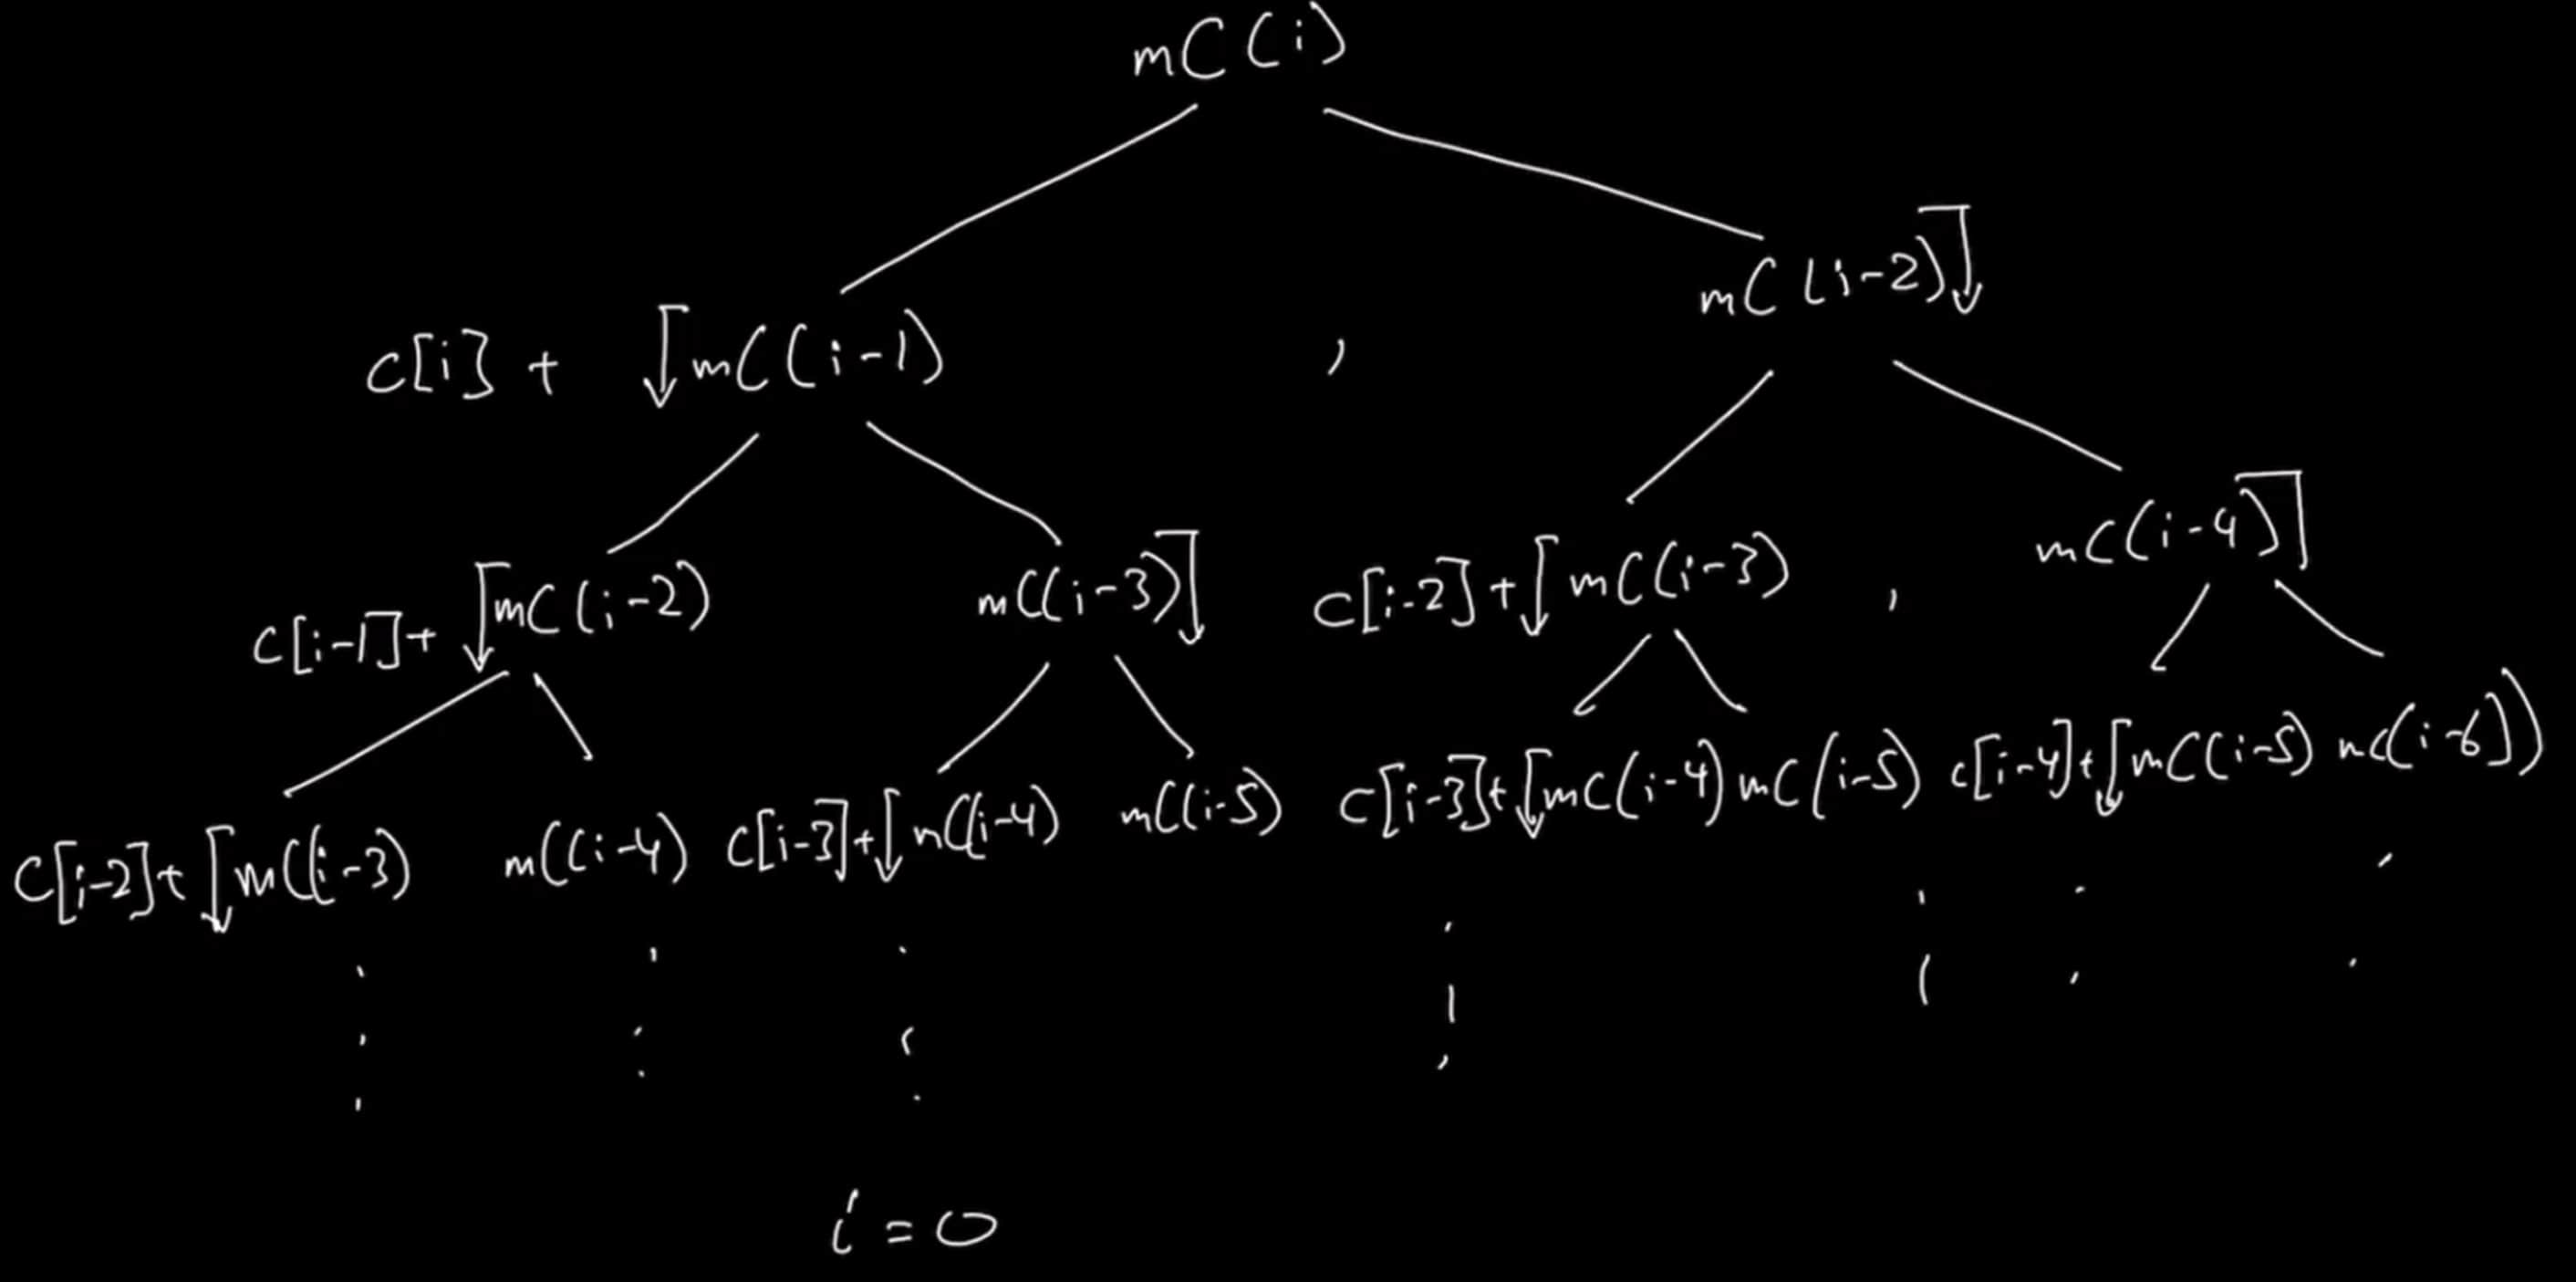 mC(i)
mC(i-2)
c[i] + mC(i-1) ,
mC(i-4)
c[i-1]+ mC(i-2) mC(i-3) c[i-2]+ mC(i-3) ,
c[i-2]+ mC(i-3) mC(i-4) c[i-3]+ mC(i-4) mC(i-5) c[i-3]+ mC(i-4) mC(i-5) c[i-4]+ mC(i-5) mC(i-6))
i = 0